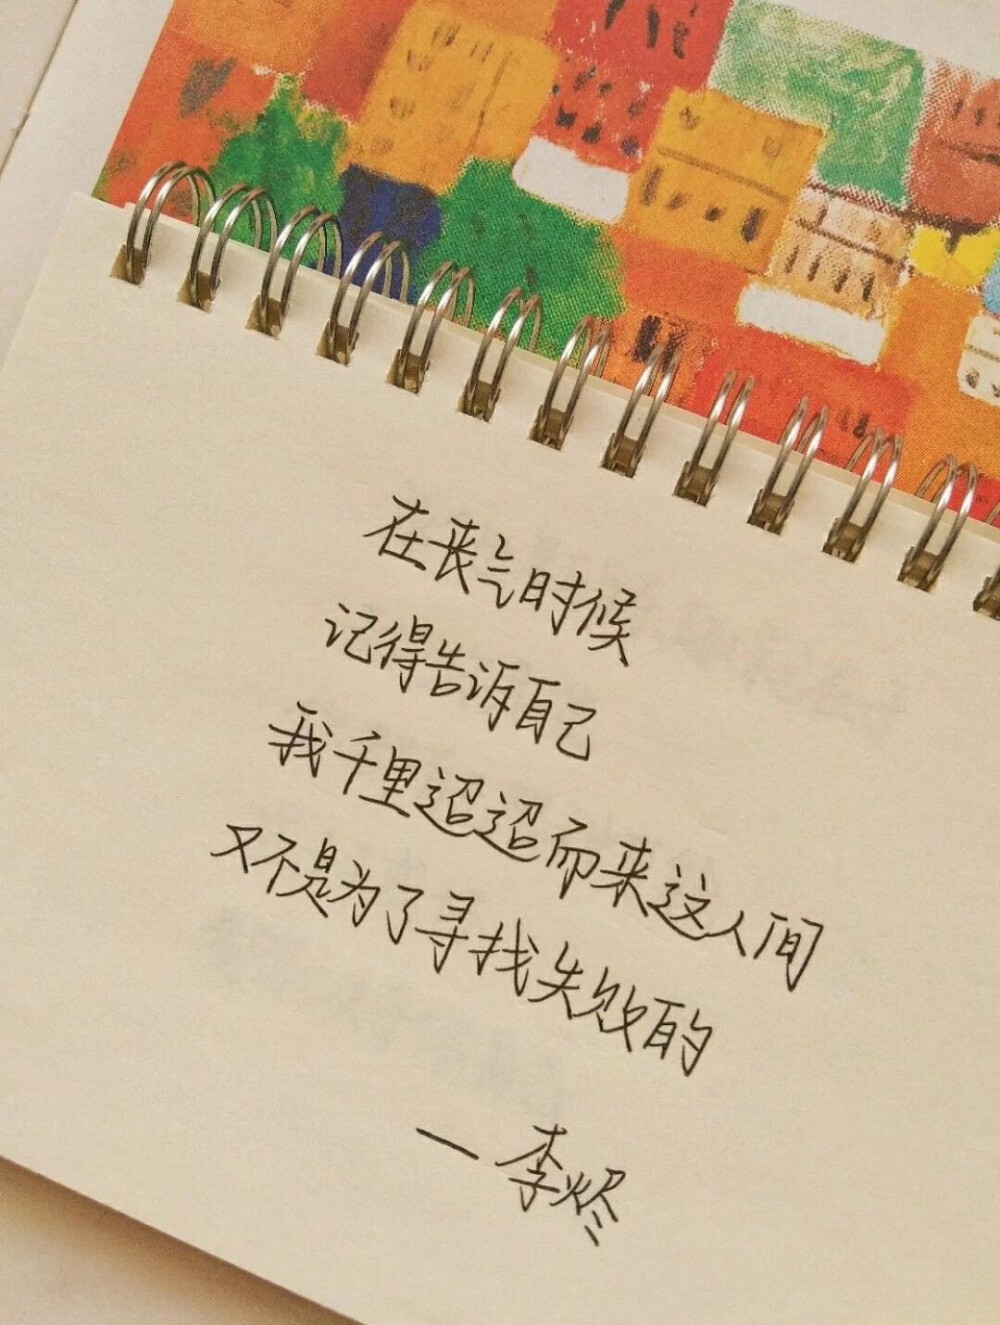 在丧气时候
记得告诉自己
我千里迢迢而来这人间
又不是为了寻找失败的
一李烬